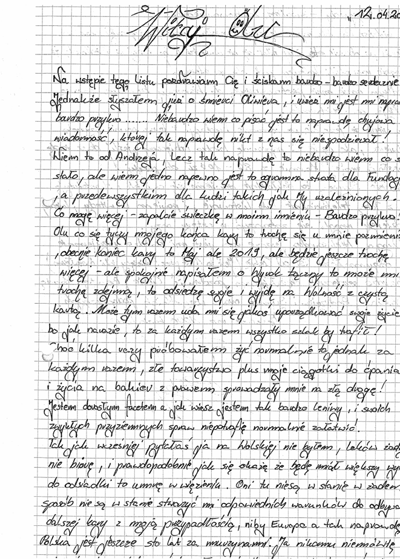 12.04.20
Witaj Olu
Na wstępie tego listu pozdrawiam Cię i ściskam bardzo - bardzo serdecznie
Jednakże słyszałem już o śmierci Oliwiera, i uwież mi jest mi napra
bardzo przykro........ Niebardzo wiem co pisać jest to naprawdę chujowa
wiadomość, której tak naprawdę nikt z nas się niespodziewał!
Wiem to od Andrzeja, lecz tak naprawdę to niebardzo wiem co s
stało, ale wiem jedno napewno jest to ogromna strata dla Fundacj
, a przedewszystkim dla ludzi takich jak My uzależnionych.
Co mogę więcej - zapalcie świeczkę w moim imieniu - Bardzo przykro!
Olu co się tyczy mojego końca kary to trochę się u mnie pozmieniło
, obecnie koniec kary to May ale 2019, ale będzie jeszcze trochę
więcej - ale spokojnie napisałem o Wyrok łączny to może mi
trochę zdejmą, to odsiedzę swoje i wyjdę na Wolność z czystą
kartą. Może tym razem uda mi się jakoś uporządkować swoje życie
bo jak narazie, to za każdym razem wszystko szlak by trafił!
Choć kilka razy próbowałem żyć normalnie to jednak za
każdym razem, złe towarzystwo plus moje ciągotki do ćpania
i życia na bakier z prawem sprowadzały mnie na złą drogę!
Jestem dorosłym facetem a jak wiesz jestem tak bardzo leniwy, i swoich
zwykłych przyziemnych spraw niepotrafię normalnie załatwić.
Tak jak wcześniej pytałaś ja na Wolskiej nie byłem, leków żad
nie biorę, i prawdopodobnie jak się okaże że będę miał większy wy
do odsiadki to umrę w więzieniu. Oni tu niesą w stanie w żaden
sposób nie są w stanie stworzyć mi odpowiednich warunków do odbywa
dalszej kary z moją przypadłością, niby Europa a tak naprawdę
Polska jest jeszcze sto lat za murzynami. Ja nikomu niemówiłe